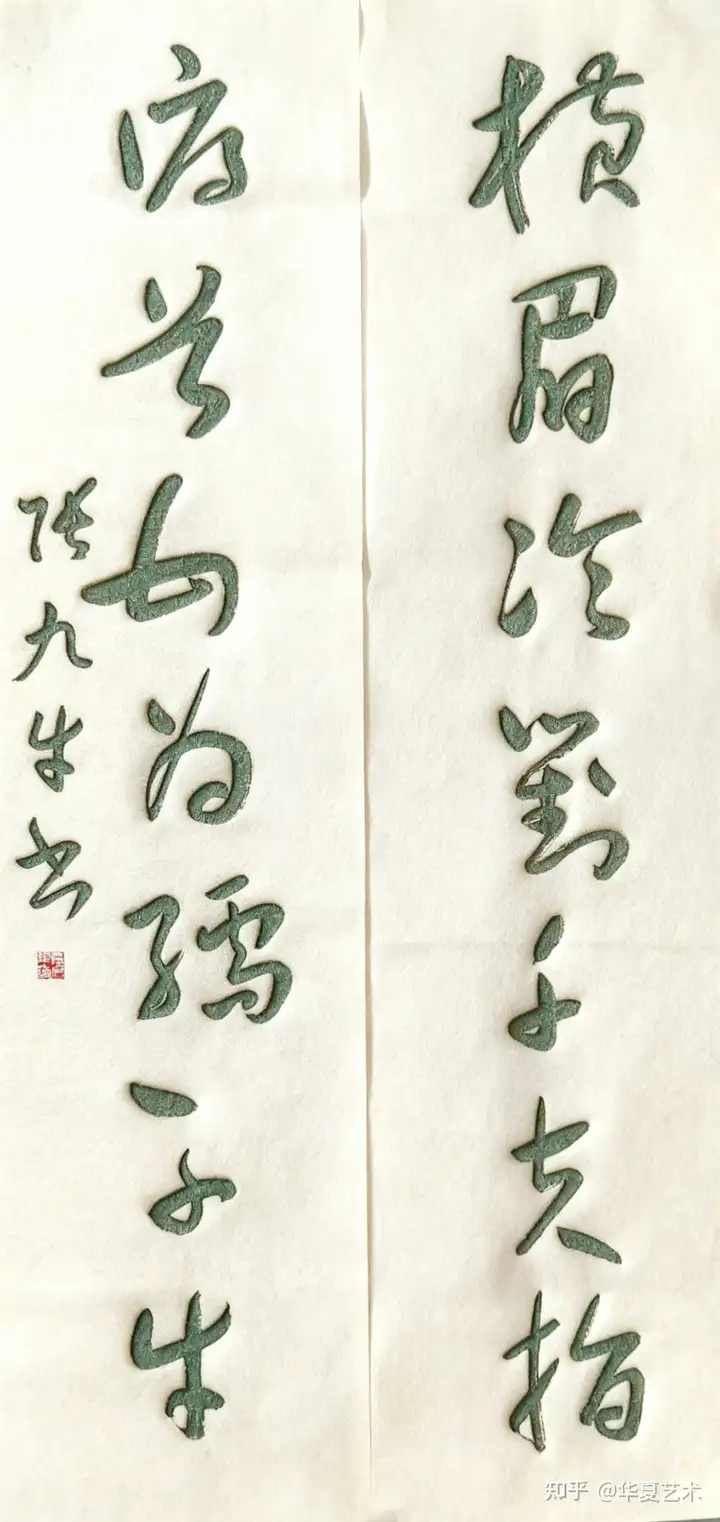 横眉冷對千夫指
俯首甘为孺子牛
九牛书
知乎 @华夏艺术